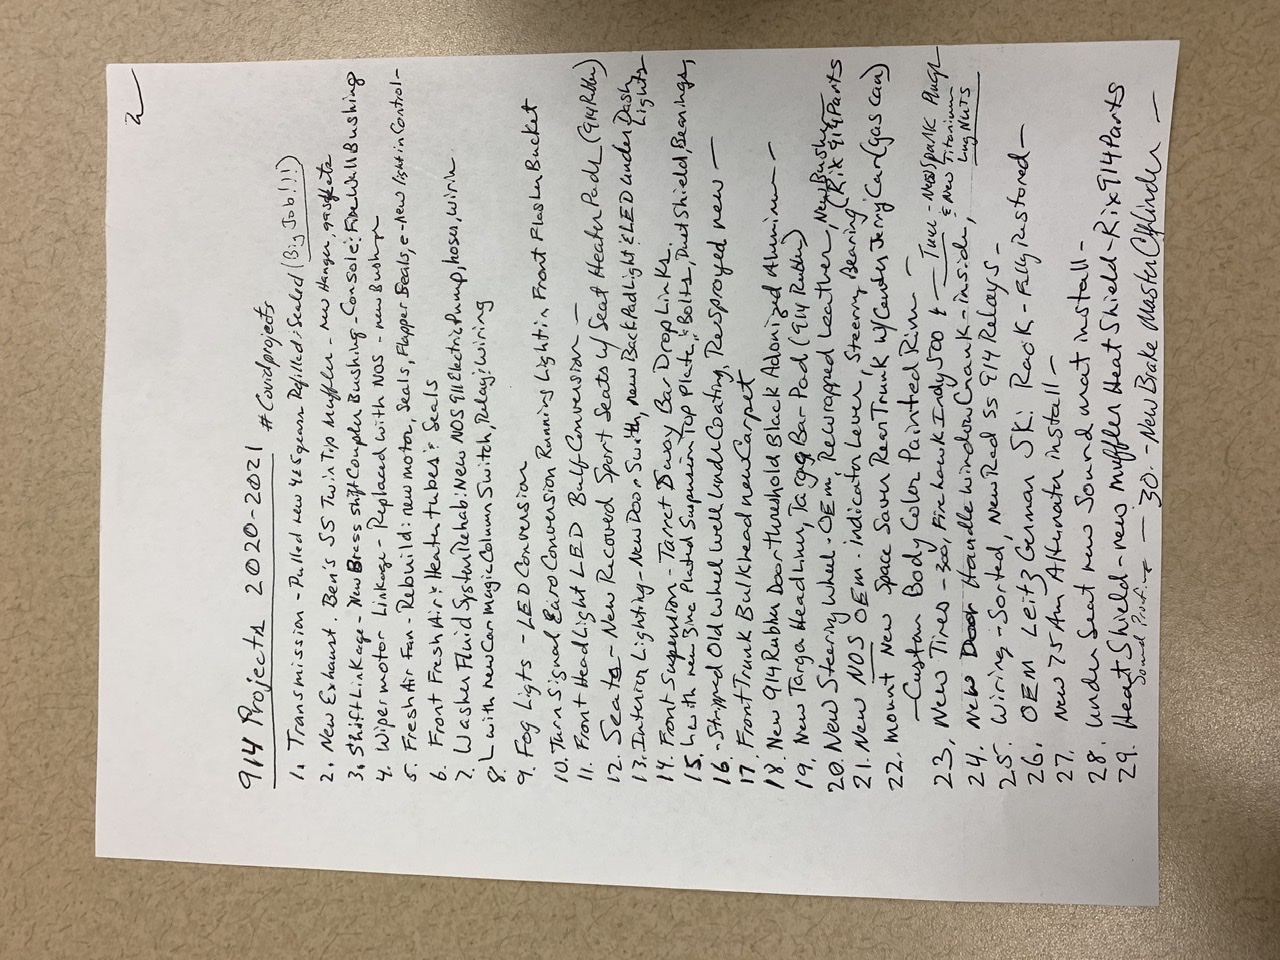 2
914 Projects 2020-2021 #Covidprojects
1. Transmission - Pulled new 4 & 5 gears Refilled & Sealed (Big Job!!!)
2. New Exhaust. Ben's SS Twin Tip Muffler - new Hanger, gaskets
3. Shift Linkage - New Brass Shift Coupler Bushing - Console & Fire Wall Bushing
4. Wiper motor Linkage - Replaced with NOS - new Bushings
5. Fresh Air Fan - Rebuild: new motor, Seals, Flapper Seals, e-New light in Control -
6. Front Fresh Air & Heater tubes & Seals
7. Washer Fluid System Rehab: New NOS 911 Electric Pump, hoses, wirin
8. with new Car magic Column Switch, Relay & Wiring
9. Fog Lights - LED Conversion
10. Turn Signal Euro Conversion Running Light in Front Flasher Bucket
11. Front Head Light LED Bulb Conversion -
12. Seats - New Recoverd Sport Seats w/ Seat Heater Pads (914 Rubber)
13. Interior Lighting - New Door Swith, new Back Pad Light & LED under Dash Lights
14. Front Suspension - Tarret Sway Bar Drop Links.
15. with new Zinc Plated Suspension Top Plate & Bolts, Dust Shield, Bearings,
16. - Stripped Old Wheel well Under Coating, Resprayed new -
17. Front Trunk Bulkhead new Carpet
18. New 914 Rubber Door threshold Black Adonized Aluminum -
19. New Targa Headliner, Targa Bar Pad (914 Rubber)
20. New Steering Wheel - OEM, Rewrapped Leather, New Bushing
21. New NOS OEM - indicator Lever, Steering Bearing (Rix 914 Parts
22. mount New Space Saver Rear Trunk w/ Center Jerry Can (gas can)
- Custom Body Color Painted Rim -
23. New Tires - Firehawk Indy 500 - Tune - New Spark Plugs
24. New Door Handle window Crank - inside, & New Titanium Lug Nuts
25. Wiring - Sorted, New Rad SS 914 Relays -
26. OEM Leitz German Ski Rack - Fully restored -
27. New 75 Am Alternator install -
28. Under Seat new Sound mat install -
29. Heat Shield - new Muffler Heat Shield - Rix 914 Parts
Sound Proofing - 30. - New Brake Master Cylinder -